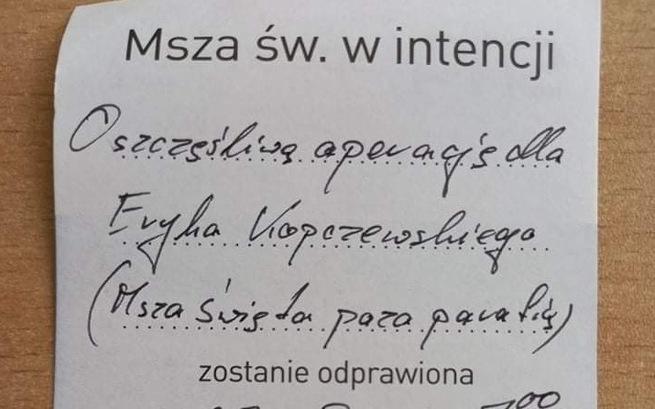 Msza św. w intencji
O szczęśliwą operację dla
Eryka Kopczewskiego
(Msza Święta poza parafią)
zostanie odprawiona
7⁰⁰